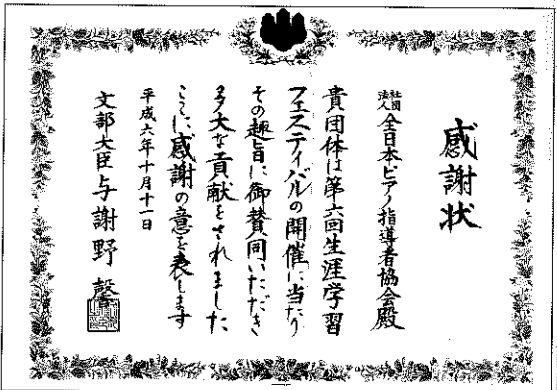 感謝状
社団法人全日本ピアノ指導者協会殿
貴団体は第六回生涯学習
フェスティバルの開催に当たり
その趣旨に御賛同いただき
多大な貢献をされました
ここに感謝の意を表します
平成六年十月十一日
文部大臣与謝野馨